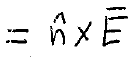 = n̂ × E̅